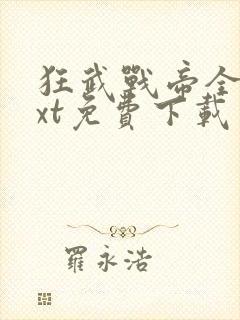 狂武戰帝全
xt免費下載
羅永浩